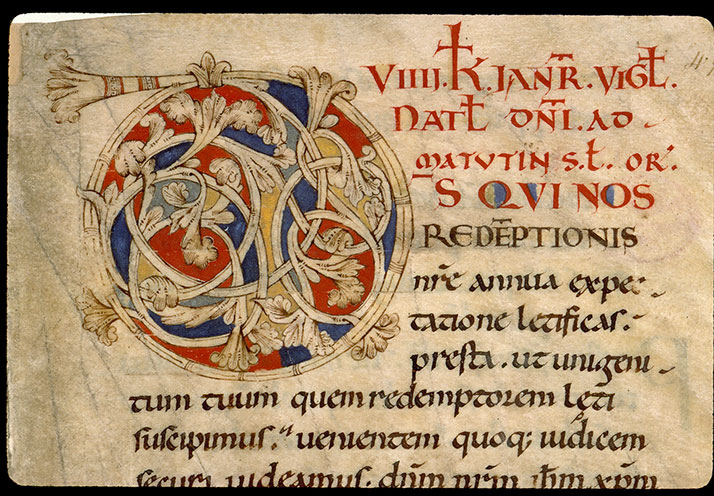 VIIII. K. IANR. VIGL.
NATL DNI. AD
MATUTIN S. L. OR.
DS QVI NOS
REDEPTIONIS
nr̄e annua expec-
tatione letificas.
presta. ut unigeni-
tum tuum quem redemptorem lęti
suscipimus. uenientem quoq; iudicem
securi uideamus. dnm nrm ihm xpm